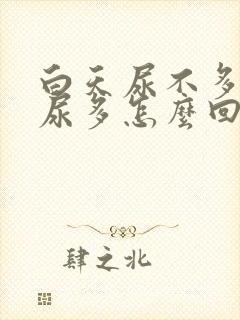 白天尿不多
尿多怎麼回
肆之北